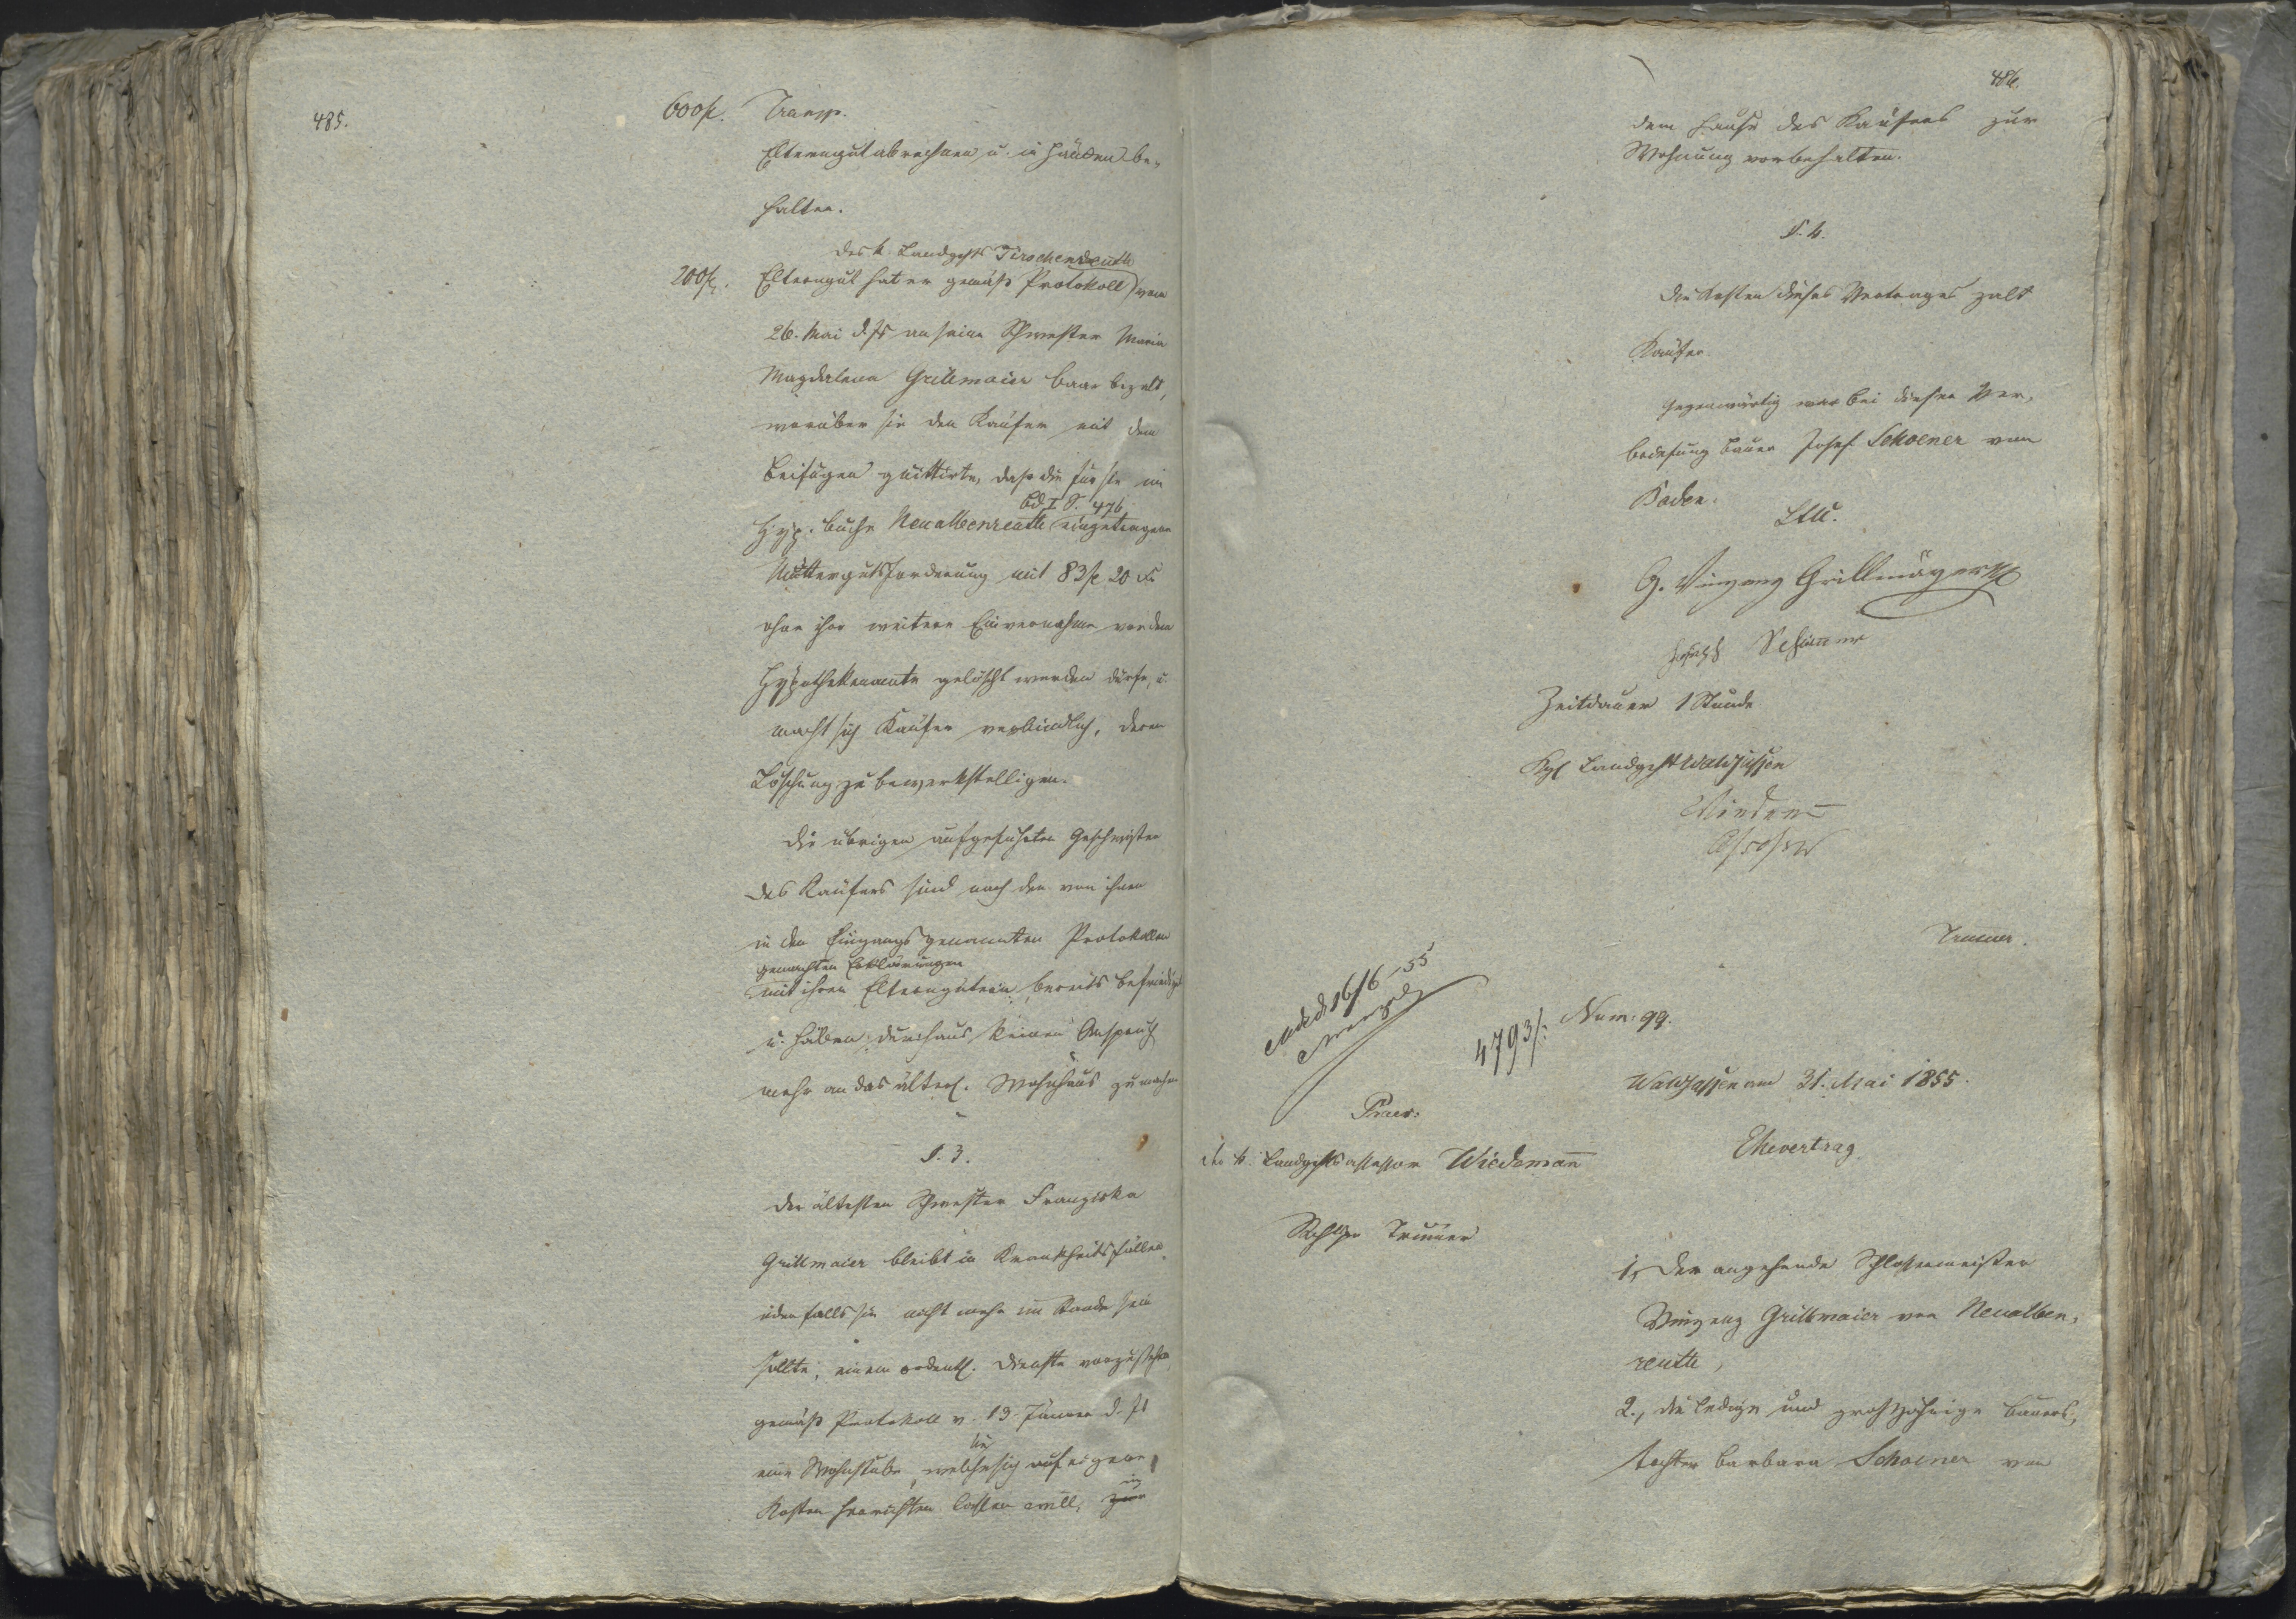 485.
600 fl. Transp.
Elterngut abrechnen u. in Händen be-
halten.
des k. Landgchts Tirschenreuth
200 fl. Elterngut hat er gemäß Protokoll vom
26. Mai d. Js an seine Schwester Maria
Magdalena Grillmaier baar bezalt,
worüber sie den Käufer mit dem
Beifügen quittirte, daß die für sie im
Bd. I S. 476
Hyp. buche Neualbenreuth eingetragene
Muttergutsforderung mit 83 fl 20 kr
ohne ihre weitere Einvernahme vor dem
Hypothekenamte gelöscht werden dürfe, u.
macht sich Käufer verbindlich, deren
Löschung zu bewerkstelligen.
Die übrigen aufgeführten Geschwister
des Käufers sind nach den von ihnen
in den Eingangs genannten Protokollen
gemachten Erklärungen
mit ihren Elterngütern bereits befriedigt
u. haben durchaus keinen Anspruch
mehr an das älterl. Wohnhaus zu machen
§. 3.
Der ältesten Schwester Franziska
Grillmaier bleibt in Krankheitsfällen,
oder falls sie nicht mehr im Stande sein
sollte, einem ordentl. Dienste vorzustehen
gemäß Protokoll v. 13. Jänner d. Js
sie
eine Wohnstube, welche sich auf eigene
in
Kosten herrichten lassen will, zur
486.
dem Hause des Käufers zur
Wohnung vorbehalten.
§. 4.
Die Kosten dieses Vertrages zalt
Käufer.
Gegenwärtig war bei dieser Ver-
briefung Bauer Josef Schoener von
Boden.
G. Vinzenz Grillmayer
Joseph Schöner
Zeitdauer 1 Stunde
Kgl Landgcht Waldsassen
Assessor
Trumer.
16/6 55
4793/.
Num: 99.
Waldsassen am 31. Mai 1855.
Praes:
Der k. Landgchts assessor Wiedemann
Ehevertrag
Trumer
1, Der angehende Schlossermeister
Vinzenz Grillmaier von Neualben-
reuth,
2., die ledige und großjährige Bauers-
tochter Barbara Schoener von